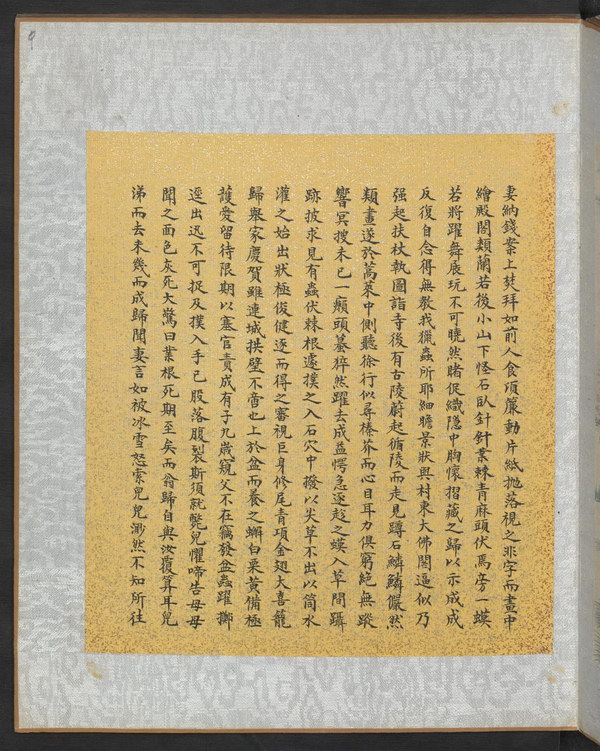 妻納錢案上焚拜如前人食頃簾動片紙拋落視之非字而畫中
繪殿閣類蘭若後小山下怪石臥針針叢棘青麻頭伏焉旁一蟆
若將躍舞展玩不可曉然睹促織隱中胸懷摺藏之歸以示成成
反復自念得無教我獵蟲所耶細瞻景狀與村東大佛閣逼似乃
强起扶杖執圖詣寺後有古陵蔚起循陵而走見蹲石鱗鱗儼然
類畫遂於蒿萊中側聽徐行似尋榛芥而心目耳力俱窮絕無蹤
響冥搜未已一癩頭蟇猝然躍去成益愕急逐趁之蟆入草間躡
跡披求見有蟲伏棘根遽撲之入石穴中撥以尖草不出以筒水
灌之始出狀極俊健逐而得之審視巨身修尾青項金翅大喜籠
歸舉家慶賀雖連城拱璧不啻也上於盆而養之蠏白栗黃備極
護愛留待限期以塞官責成有子九歲窺父不在竊發盆蟲躍擲
逕出迅不可捉及撲入手已股落腹裂斯須就斃兒懼啼告母母
聞之面色灰死大驚曰業根死期至矣而翁歸自與汝覆算耳兒
涕而去未幾而成歸聞妻言如被冰雪怒索兒兒渺然不知所往